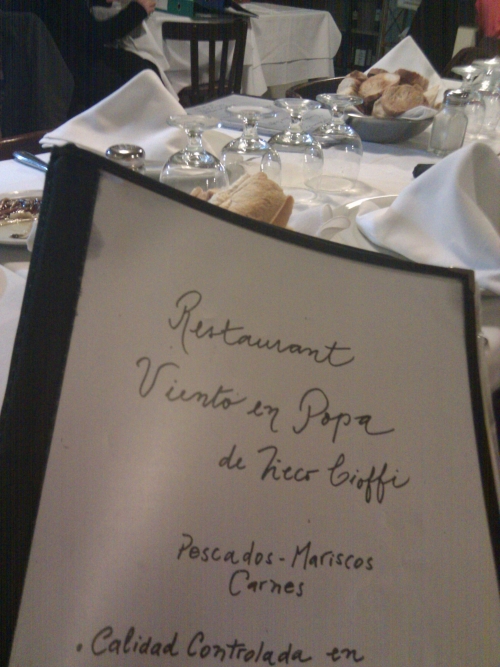 Restaurant
Viento en Popa
de Neco Gioffi
Pescados - Mariscos
Carnes
. Calidad Controlada en